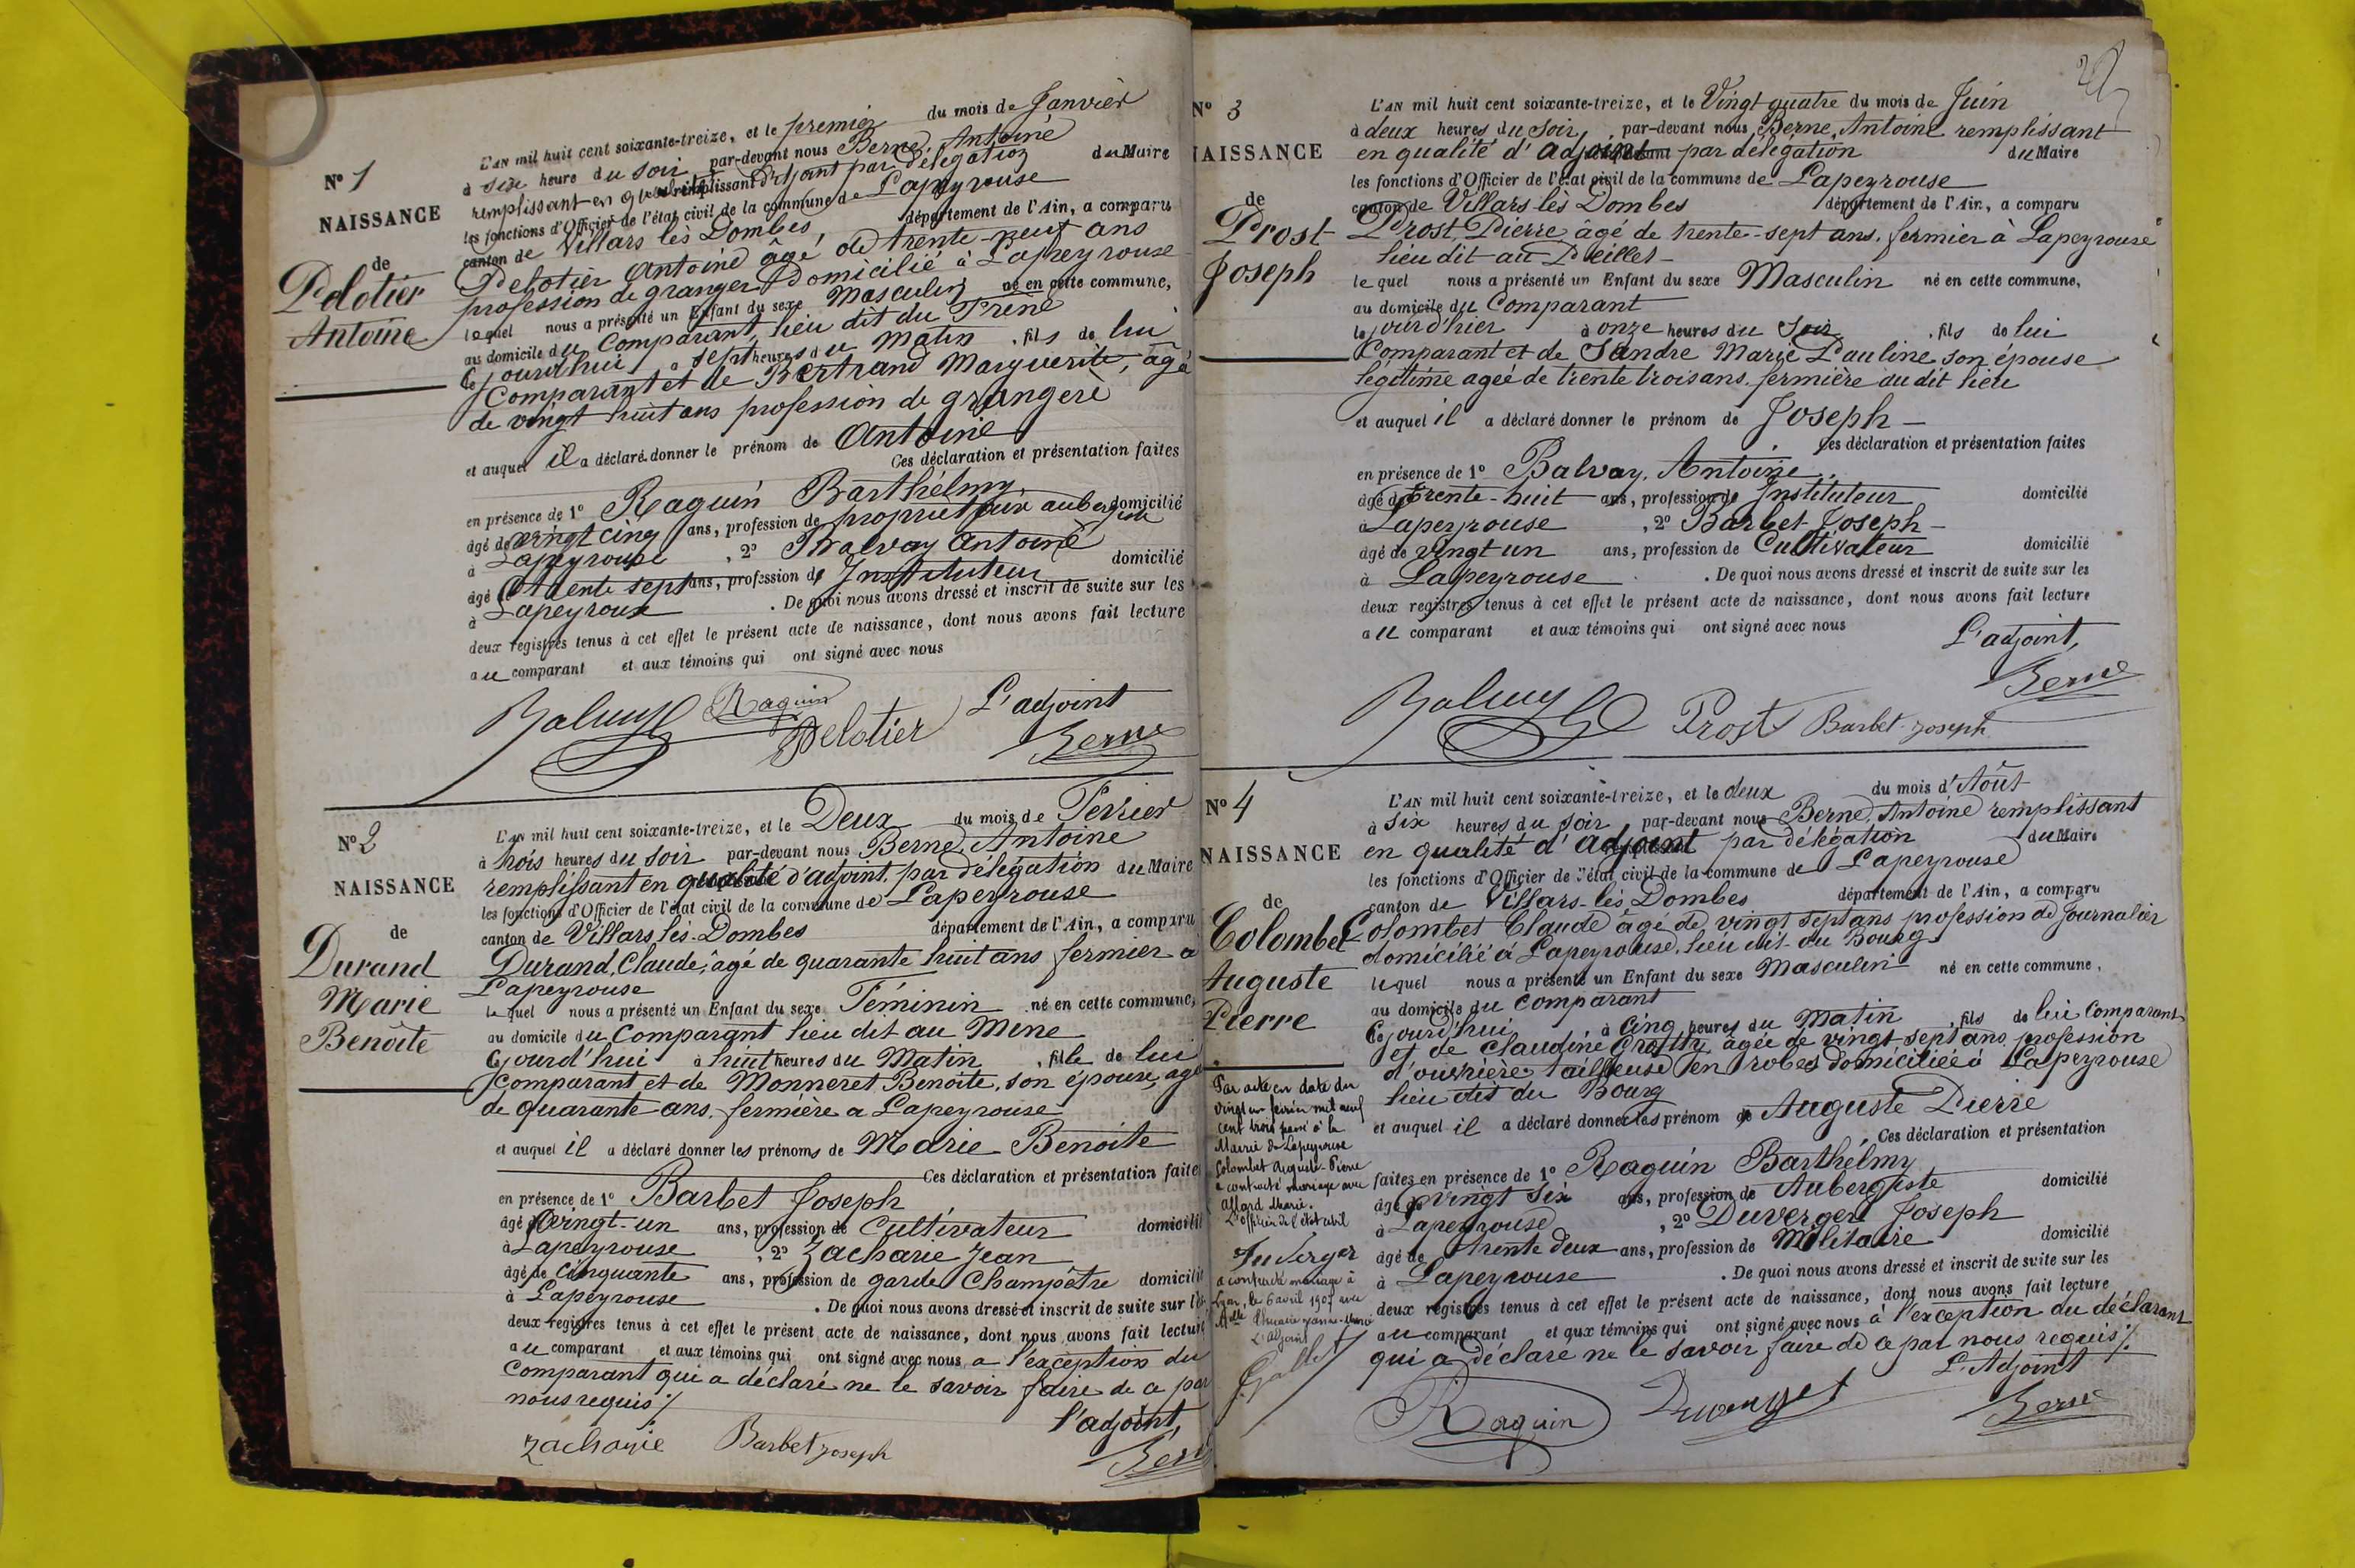 N° 1
NAISSANCE
de
Pelotier
Antoine
L'AN mil huit cent soixante-treize, et le premier du mois de Janvier
à six heure du soir par-devant nous Berne, Antoine
remplissant en qualité d'adjoint par délégation du Maire
les fonctions d'Officier de l'état civil de la commune de Lapeyrouse
canton de Villars lès Dombes, département de l'Ain, a comparu
Pelotier Antoine âgé de trente-neuf ans
profession de granger Domicilié à Lapeyrouse
lequel nous a présenté un Enfant du sexe Masculin né en cette commune,
au domicile du Comparant, lieu dit du Frène
Cejourd'hui à sept heures du Matin, fils de lui
Comparant et de Bertrand Marguerite, âgé
de vingt huit ans profession de grangere
et auquel il a déclaré donner le prénom de Antoine
Ces déclaration et présentation faites
en présence de 1° Raquin Barthélmy
âgé de vingt cinq ans, profession de propriétaire aubergiste domicilié
à Lapeyrouse, 2° Balvay Antoine
âgé de trente sept ans, profession de Instituteur domicilié
à Lapeyrouse. De quoi nous avons dressé et inscrit de suite sur les
deux registres tenus à cet effet le présent acte de naissance, dont nous avons fait lecture
au comparant et aux témoins qui ont signé avec nous
Balvay Raquin Pelotier L'adjoint
Berne
N° 2
NAISSANCE
de
Durand
Marie
Benoîte
L'AN mil huit cent soixante-treize, et le Deux du mois de Février
à trois heures du soir par-devant nous Berne, Antoine
remplissant en qualité d'adjoint, par délégation du Maire
les fonctions d'Officier de l'état civil de la commune de Lapeyrouse
canton de Villars lès-Dombes département de l'Ain, a comparu
Durand, Claude, âgé de quarante huit ans fermier à
Lapeyrouse
lequel nous a présenté un Enfant du sexe Féminin né en cette commune,
au domicile du Comparant lieu dit au Mine
Cejourd'hui à huit heures du Matin, fille de lui
comparant et de Monneret Benoîte, son épouse, agé
de quarante ans, fermière a Lapeyrouse
et auquel il a déclaré donner les prénoms de Marie Benoite
Ces déclaration et présentation faites
en présence de 1° Barbet Joseph
âgé de vingt-un ans, profession de Cultivateur domicilié
à Lapeyrouse, 2° Zacharie Jean
âgé de Cinquante ans, profession de garde Champêtre domicilié
à Lapeyrouse. De quoi nous avons dressé et inscrit de suite sur les
deux registres tenus à cet effet le présent acte de naissance, dont nous avons fait lecture
au comparant et aux témoins qui ont signé avec nous a l'exception du
Comparant qui a déclaré ne le savoir faire de ce par
nous requis ./.
l'adjoint,
zacharie Barbet joseph Berne
N° 3
NAISSANCE
de
Prost
Joseph
L'AN mil huit cent soixante-treize, et le Vingt quatre du mois de Juin
à deux heures du soir, par-devant nous Berne, Antoine remplissant
en qualité d'adjoint par délégation du Maire
les fonctions d'Officier de l'état civil de la commune de Lapeyrouse
canton de Villars lès Dombes département de l'Ain, a comparu
Prost, Pierre âgé de trente-sept ans, fermier à Lapeyrouse
lieu dit au
lequel nous a présenté un Enfant du sexe Masculin né en cette commune,
au domicile du Comparant
le jour d'hier à onze heures du Soir, fils de lui
Comparant et de Sandre Marie Pauline son épouse
légitime agée de trente trois ans fermière au dit lieu
et auquel il a déclaré donner le prénom de Joseph
Ces déclaration et présentation faites
en présence de 1° Balvay, Antoine
âgé de trente-huit ans, profession de Instituteur domicilié
à Lapeyrouse, 2° Barbet Joseph
âgé de vingt un ans, profession de Cultivateur domicilié
à Lapeyrouse. De quoi nous avons dressé et inscrit de suite sur les
deux registres tenus à cet effet le présent acte de naissance, dont nous avons fait lecture
au comparant et aux témoins qui ont signé avec nous
L'adjoint,
Balvay Prost Barbet joseph Berne
N° 4
NAISSANCE
de
Colombet
Auguste
Pierre
Par acte en date du
vingt un février mil neuf
cent trois passé à la
Mairie de Lapeyrouse
Colombet Auguste-Pierre
a contracté mariage avec
Allard Marie.
L'officier de l'état civil
a contracté mariage à
Lyon, le 6 avril 1907 avec
Melle
L'adjoint
L'AN mil huit cent soixante-treize, et le deux du mois d'Août
à six heures du soir, par-devant nous Berne, Antoine remplissant
en qualité d'adjoint par délégation du Maire
les fonctions d'Officier de l'état civil de la commune de Lapeyrouse
canton de Villars-lès Dombes département de l'Ain, a comparu
Colombet Claude âgé de vingt sept ans profession de Journalier
domicilié à Lapeyrouse, lieu dit du Bourg
lequel nous a présenté un Enfant du sexe Masculin né en cette commune,
au domicile du comparant
Cejourd'hui à Cinq heures du Matin, fils de lui Comparant
et de Claudine agée de vingt-sept ans profession
d'ouvrière tailleuse en robes domiciliée à Lapeyrouse
lieu dit du Bourg
et auquel il a déclaré donner les prénom de Auguste Pierre
Ces déclaration et présentation
faites en présence de 1° Raquin Barthélmy
âgé de vingt six ans, profession de Aubergiste domicilié
à Lapeyrouse, 2° Duverger Joseph
âgé de trente deux ans, profession de Militaire domicilié
à Lapeyrouse. De quoi nous avons dressé et inscrit de suite sur les
deux registres tenus à cet effet le présent acte de naissance, dont nous avons fait lecture
au comparant et aux témoins qui ont signé avec nous à l'exception du déclarant
qui a déclaré ne le savoir faire de ce par nous requis ./.
L'Adjoint
Raquin Duverger Berne